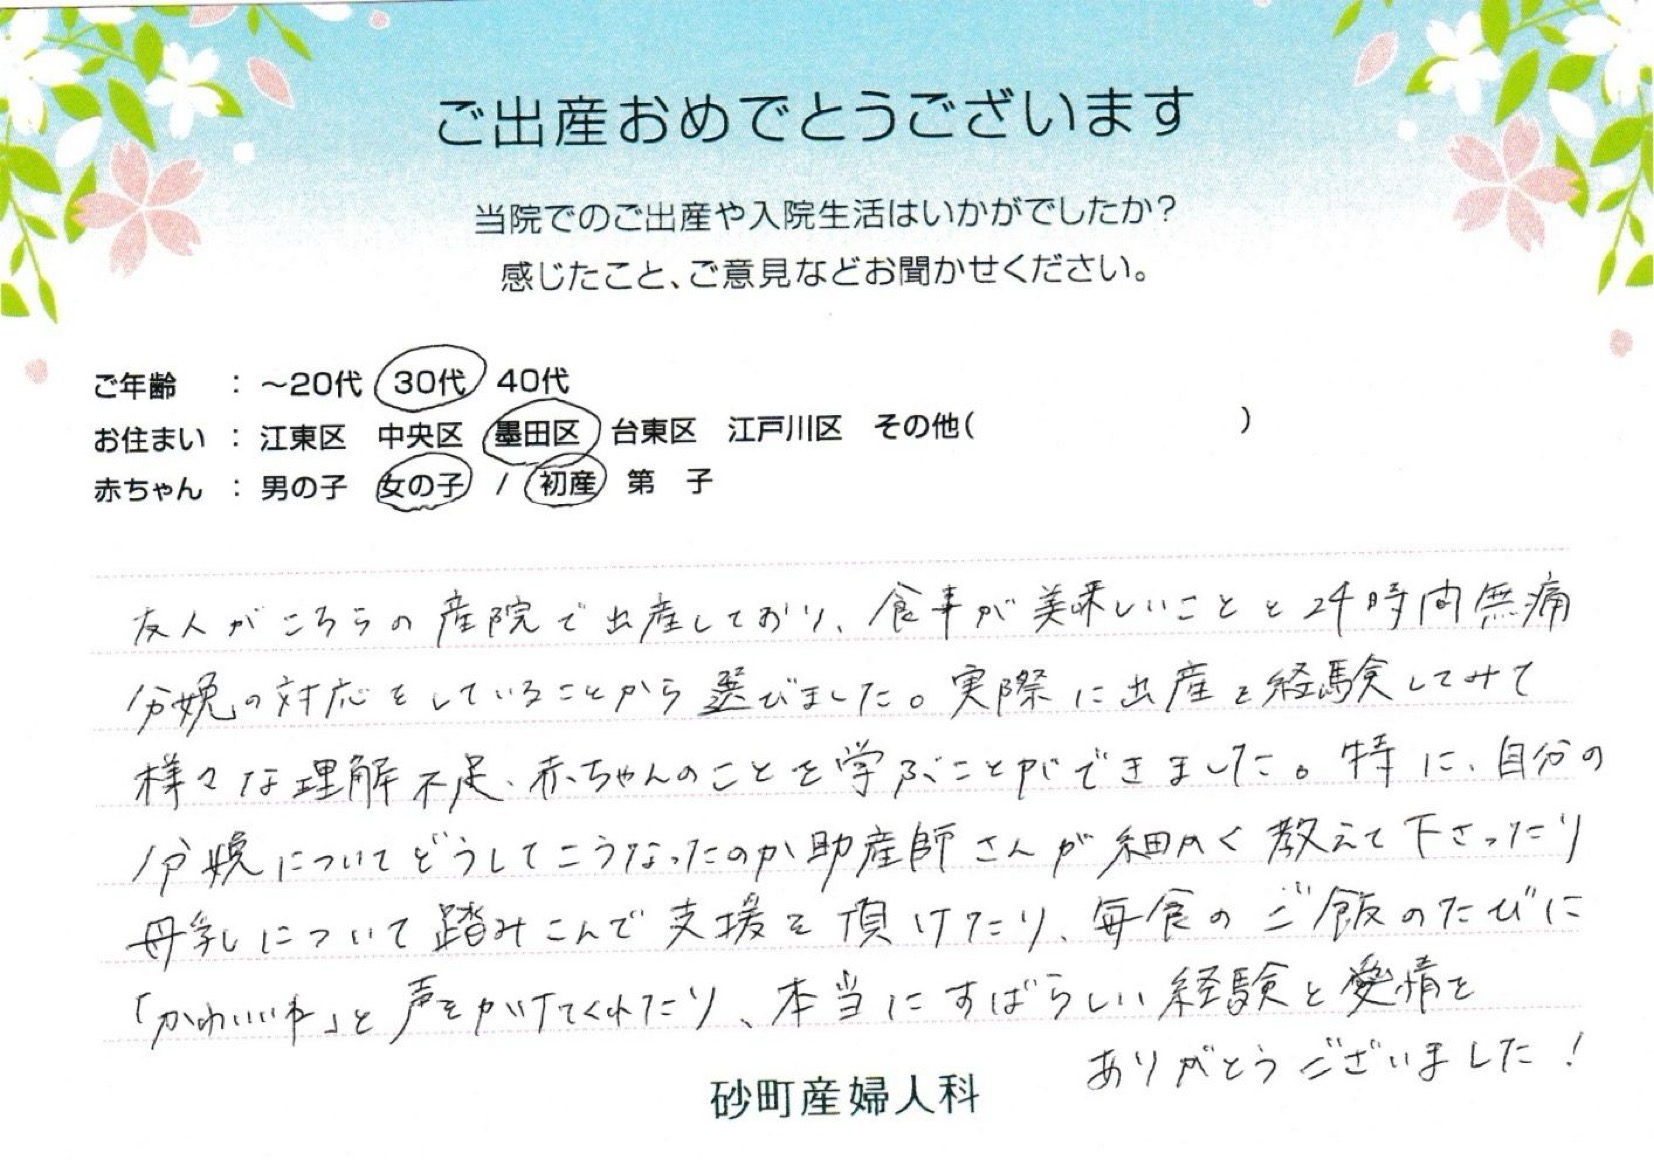 ご出産おめでとうございます
当院でのご出産や入院生活はいかがでしたか?
感じたこと、ご意見などお聞かせください。
ご年齢 : ～20代 30代 40代
お住まい : 江東区 中央区 墨田区 台東区 江戸川区 その他( )
赤ちゃん : 男の子 女の子 / 初産 第 子
友人がこちらの産院で出産しており、食事が美味しいことと24時間無痛
分娩の対応をしていることから選びました。実際に出産を経験してみて
様々な理解不足、赤ちゃんのことを学ぶことができました。特に、自分の
分娩についてどうしてこうなったのか助産師さんが細かく教えて下さったり
母乳について踏みこんで支援を頂けたり、毎食のご飯のたびに
「かわいいね」と声をかけてくれたり、本当にすばらしい経験と愛情を
ありがとうございました!
砂町産婦人科